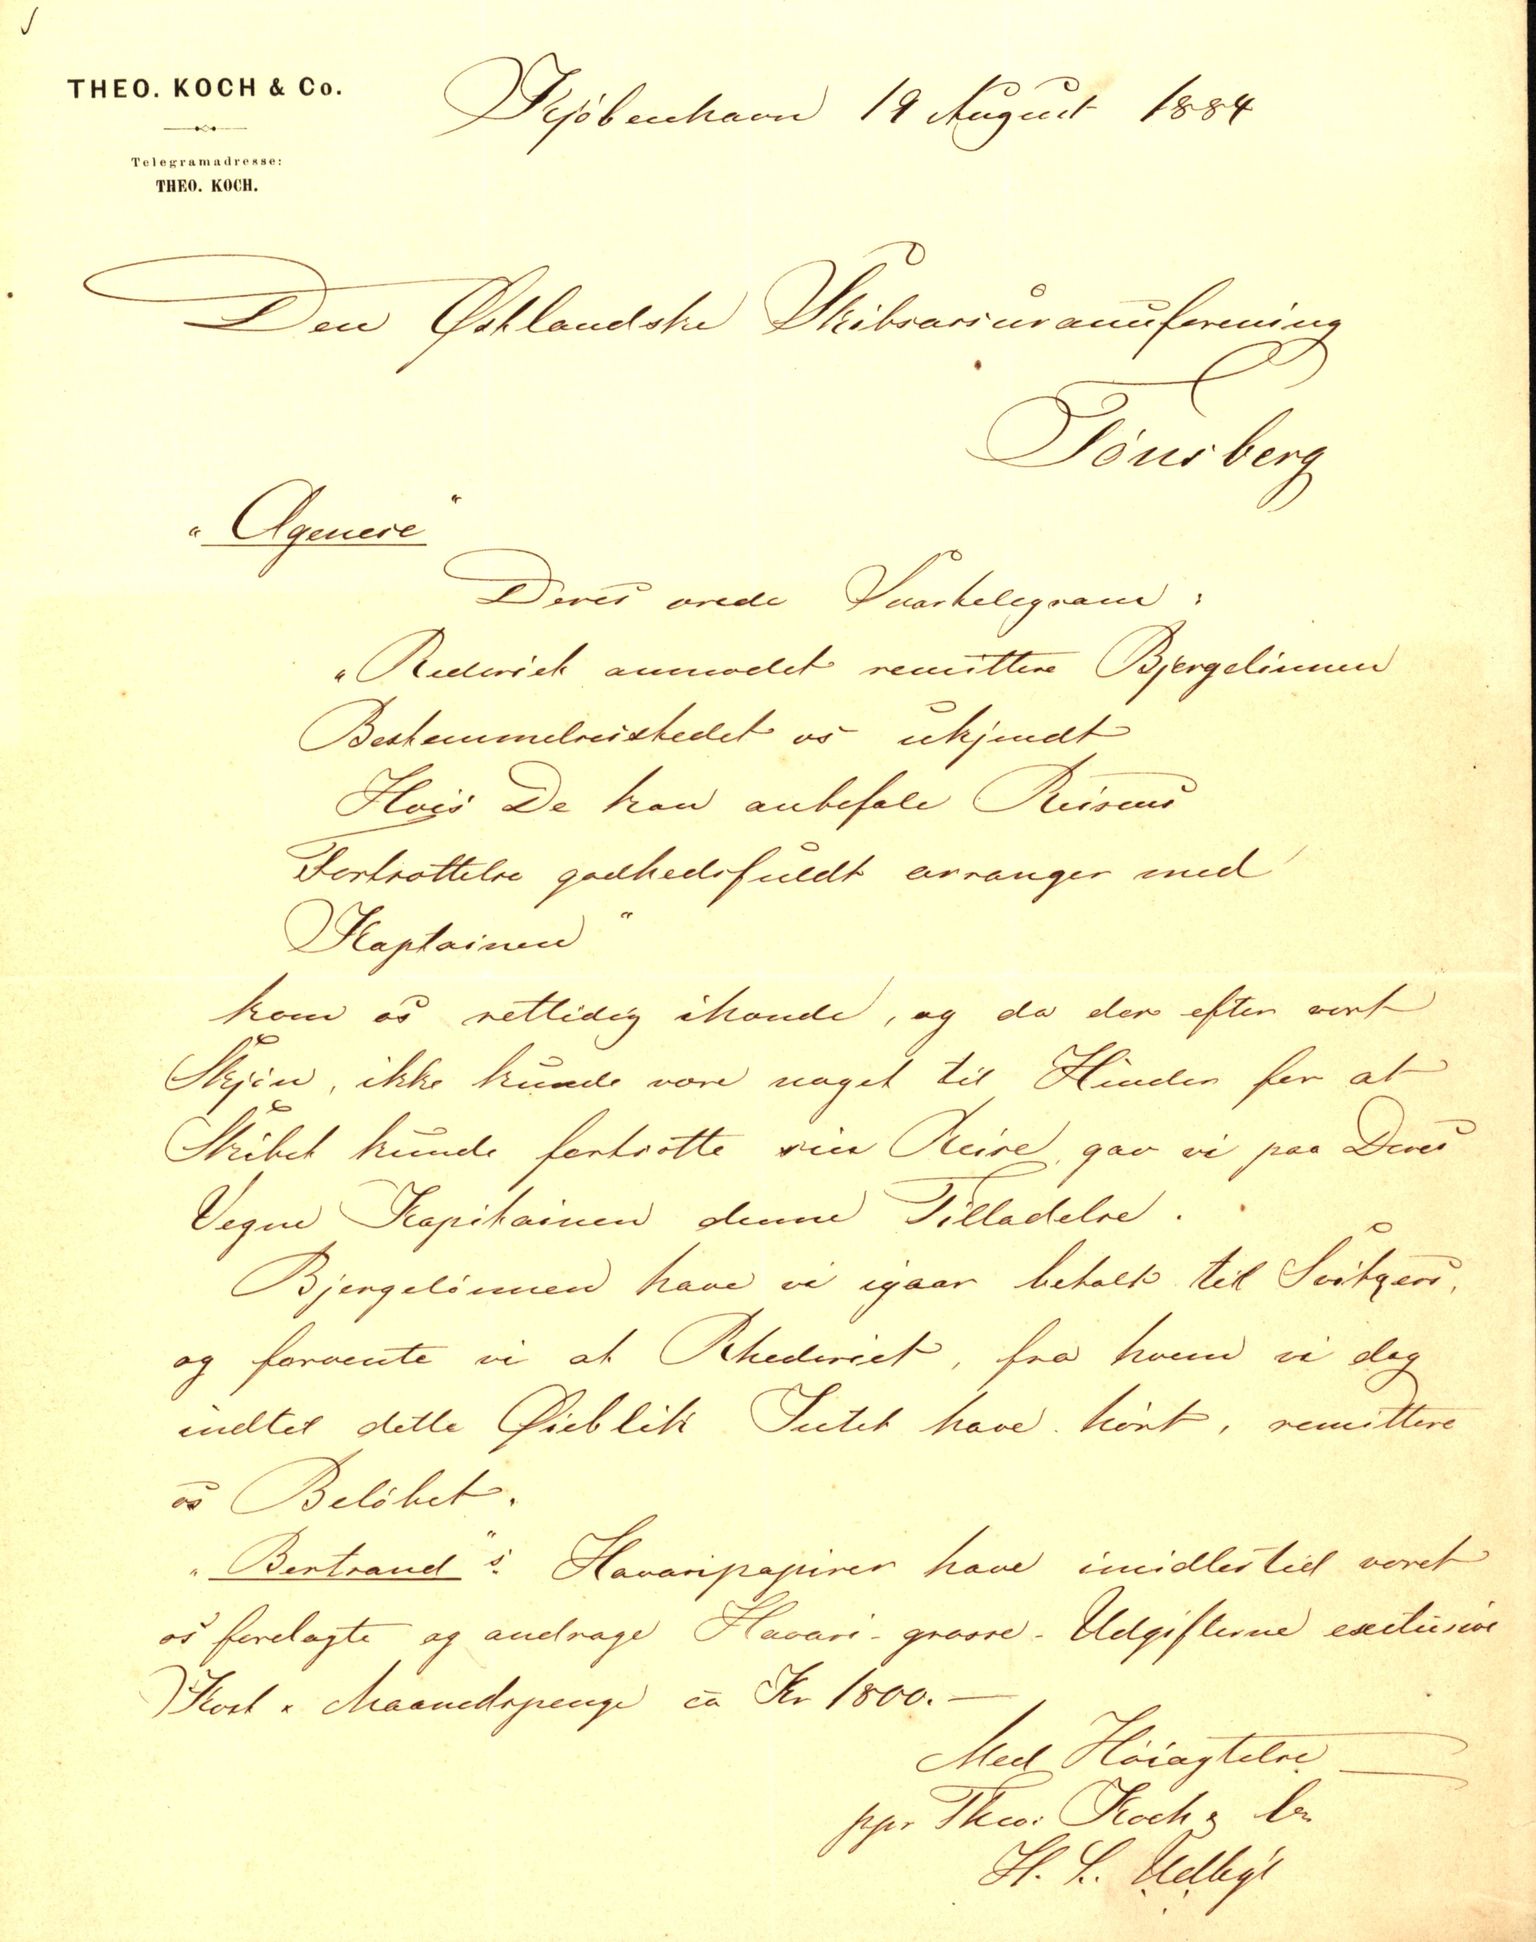 THEO. KOCH & Co.
Telegramadresse:
THEO. KOCH.
Kjöbenhavn 19 August 1884
Den Østlandske Skibsassuranceforening
Tönsberg
"Agenese"
Deres ærede Svartelegram:
"Rederiet anmodet remittere Bjergelönnen
Bestemmelsesstedet os ukjendt
Hvis De kan anbefale Reisens
Fortsættelse godhedsfuldt arranger med
Kaptainen"
kom os rettidig ihænde, og da der efter vort
Skjön, ikke kunde være noget til Hinder for at
Skibet kunde fortsætte sin Reise, gav vi paa Deres
Vegne Kapitainen denne Tilladelse.
Bjergelönnen have vi igaar betalt til Svitzers,
og forvente vi at Rhederiet, fra hvem vi dog
indtil dette Øieblik Intet have hört, remittere
os Belöbet.
"Bertrand"s. Havaripapirer have imidlertid været
os forelagte og andrage Havari-grosse-Udgifterne exclusive
Kost & Maanedspenge ca Kr 1800.—
Med Höiagtelse
ppr Theo. Koch & Co
H. L.